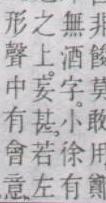 非餕莫敢用鄭
無酒字小徐有
之上妄甚若左
形聲中有會意